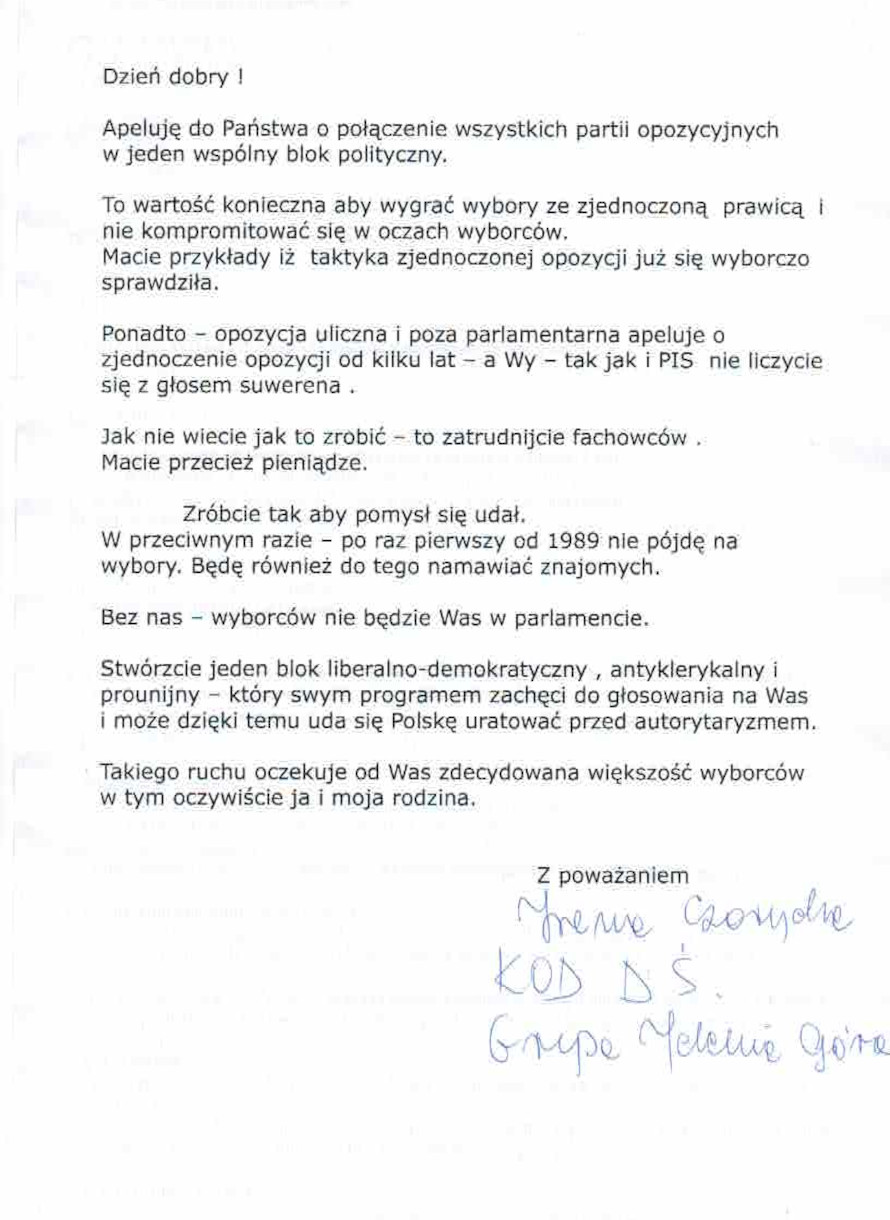 Dzień dobry !
Apeluję do Państwa o połączenie wszystkich partii opozycyjnych
w jeden wspólny blok polityczny.
To wartość konieczna aby wygrać wybory ze zjednoczoną prawicą i
nie kompromitować się w oczach wyborców.
Macie przykłady iż taktyka zjednoczonej opozycji już się wyborczo
sprawdziła.
Ponadto – opozycja uliczna i poza parlamentarna apeluje o
zjednoczenie opozycji od kilku lat – a Wy – tak jak i PIS nie liczycie
się z głosem suwerena .
Jak nie wiecie jak to zrobić – to zatrudnijcie fachowców .
Macie przecież pieniądze.
Zróbcie tak aby pomysł się udał.
W przeciwnym razie – po raz pierwszy od 1989 nie pójdę na
wybory. Będę również do tego namawiać znajomych.
Bez nas – wyborców nie będzie Was w parlamencie.
Stwórzcie jeden blok liberalno-demokratyczny , antyklerykalny i
prounijny – który swym programem zachęci do głosowania na Was
i może dzięki temu uda się Polskę uratować przed autorytaryzmem.
Takiego ruchu oczekuje od Was zdecydowana większość wyborców
w tym oczywiście ja i moja rodzina.
Z poważaniem
Irena
KOD D Ś.
Grupa Jelenia Góra